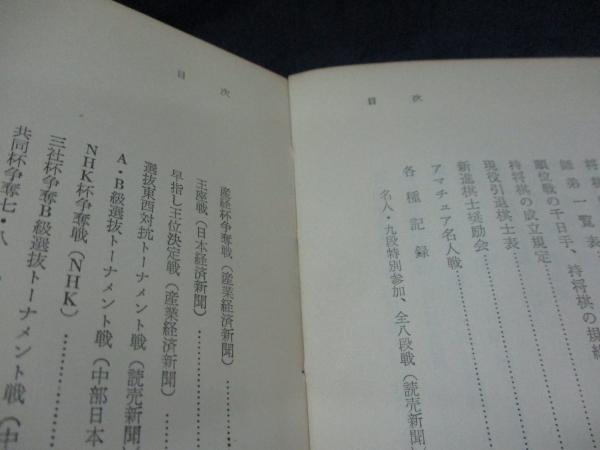 目次
将棋
師弟一覧表
順位戦の千日手、持将棋の規
持将棋の成立規定
現役引退棋士表
新進棋士奨励会
アマチュア名人戦
各種記録
名人・九段特別参加、全八段戦(読売新聞)
目次
産経杯争奪戦(産業経済新聞)
王座戦(日本経済新聞)
早指し王位決定戦(産業経済新聞)
選抜東西対抗トーナメント戦(読売新聞)
A・B級選抜トーナメント戦(中部日本
NHK杯争奪戦(NHK)
三社杯争奪B級選抜トーナメント戦(中
共同杯争奪七・八